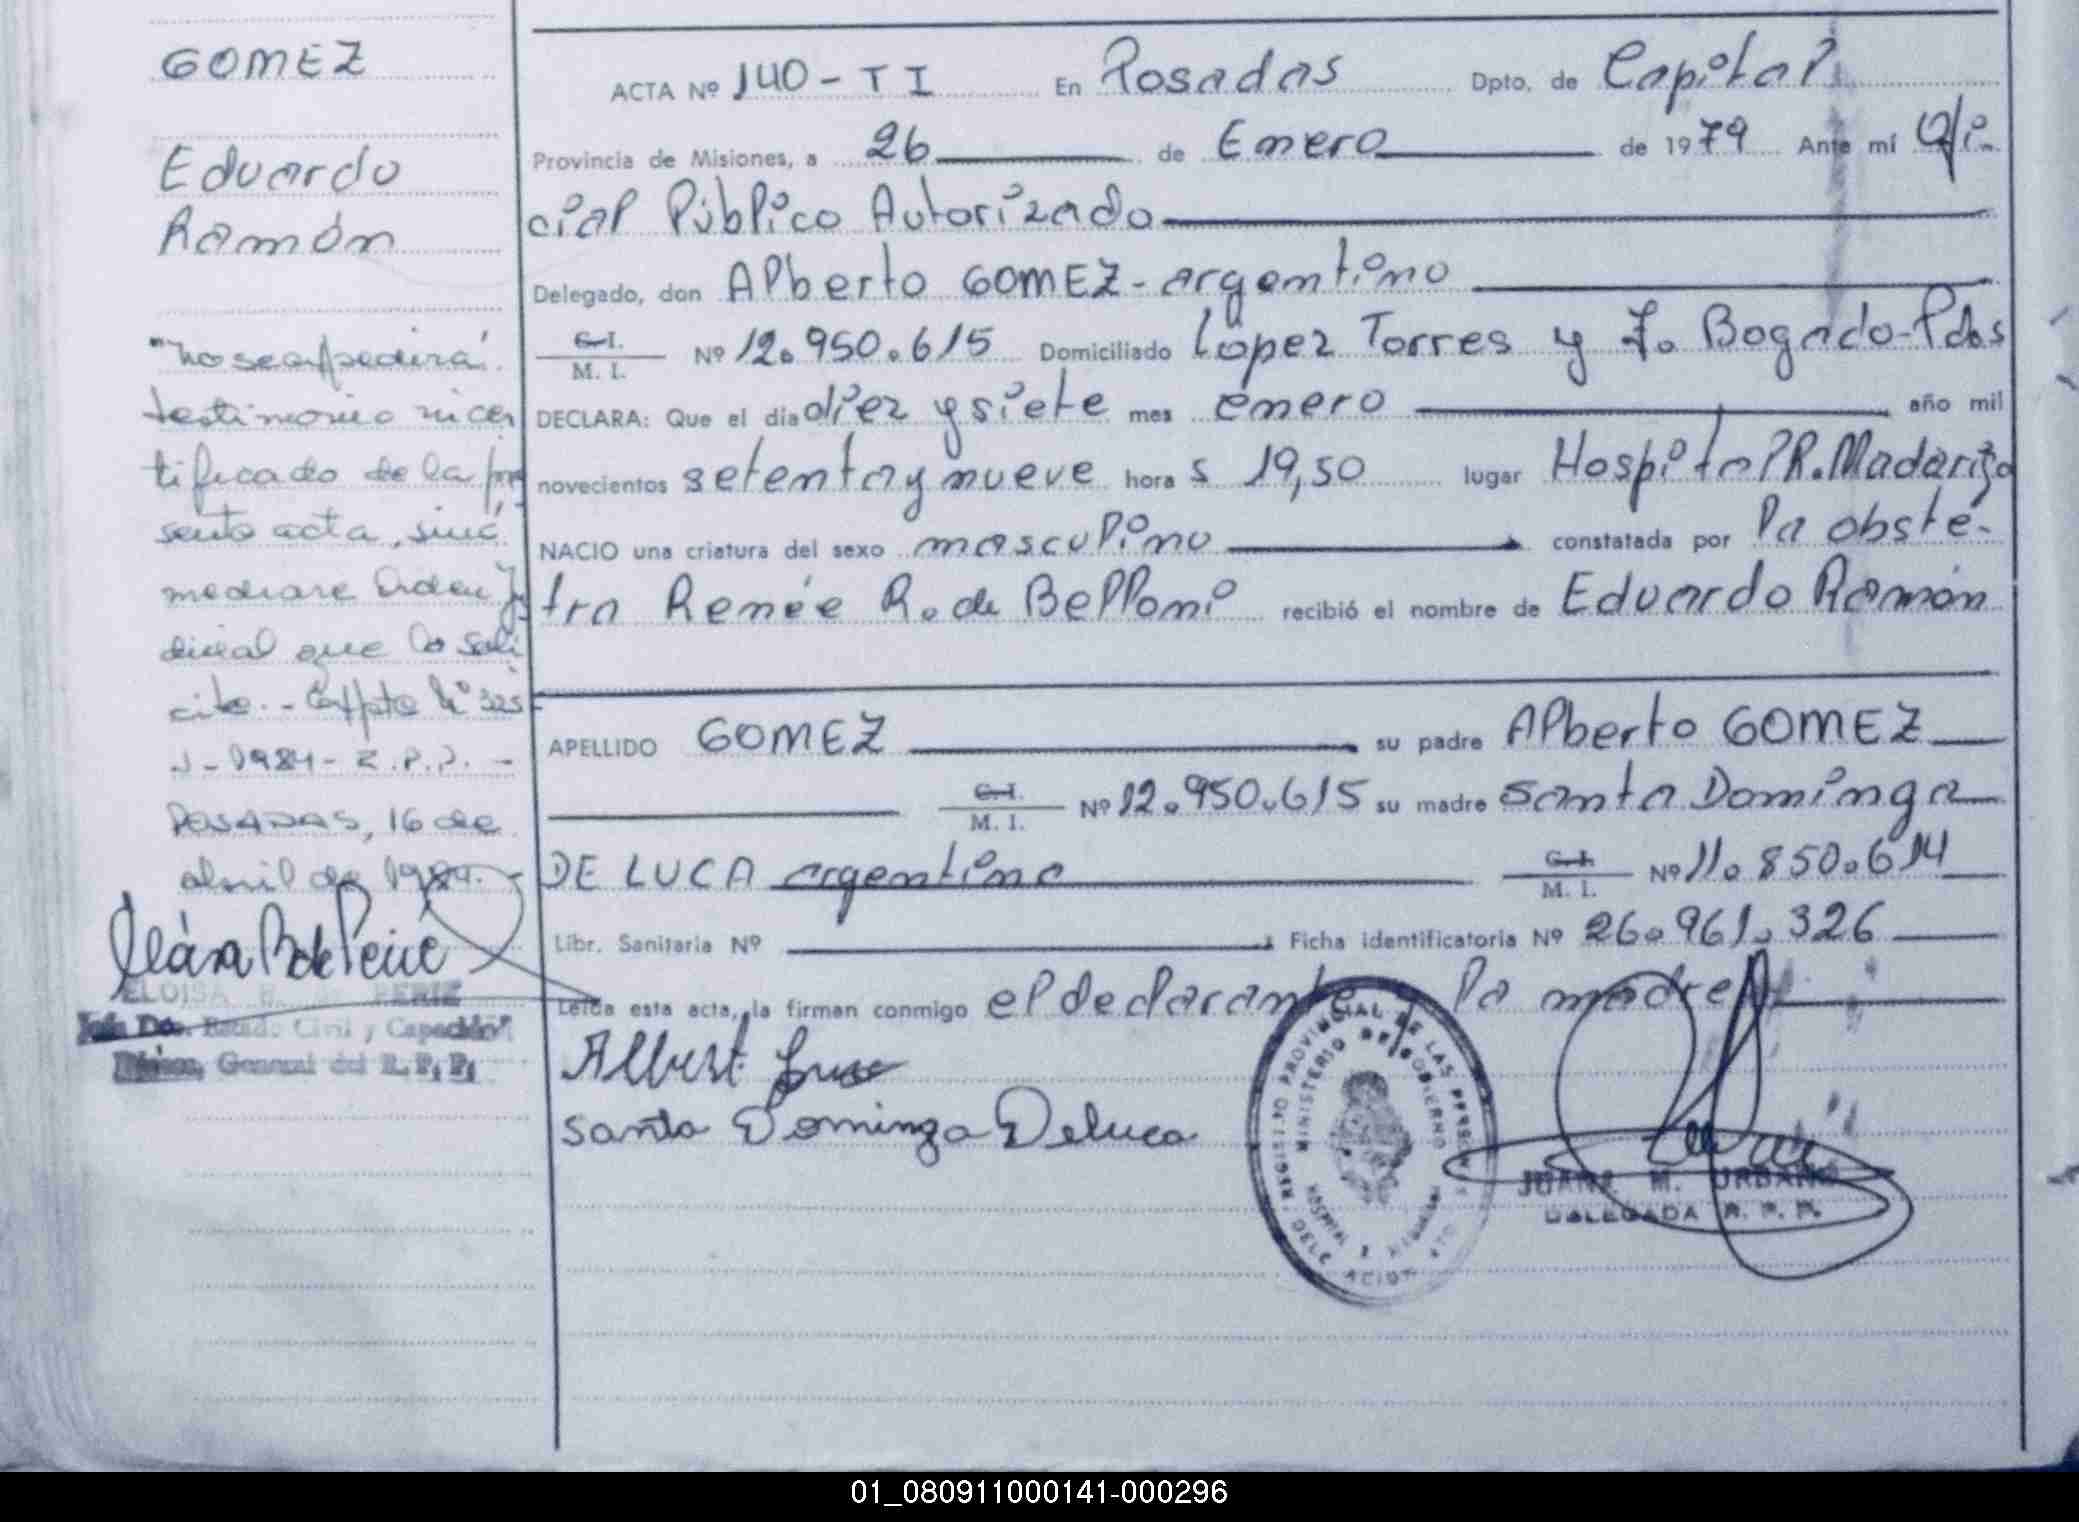 GOMEZ
Eduardo
Ramón
"No se expedirá
testimonio ni cer
tificado de la pre
sente acta, sino
mediare Orden Ju
dicial que lo soli
cite.- Expte Nº 325
J-1984- R.P.P. -
POSADAS, 16 de
abril de 1984.-
ELOISA B. de PERIE
Jefa Dto. Estado Civil y Capacidad
Direcc. General del R.P.P.
ACTA Nº 140-TI En Posadas Dpto. de Capital
Provincia de Misiones, a 26 de Enero de 1979 Ante mí Ofi-
cial Público Autorizado
Delegado, don Alberto GOMEZ-argentino
C.I.
M. I. Nº 12.950.615 Domiciliado López Torres y F. Bogado-Pdas
DECLARA: Que el día diez y siete mes enero año mil
novecientos setenta y nueve hora s 19,50 lugar Hospital R. Madariaga
NACIO una criatura del sexo masculino constatada por la obsté-
tra Renée R. de Belloni recibió el nombre de Eduardo Ramón
APELLIDO GOMEZ su padre Alberto GOMEZ
C.I.
M. I. Nº 12.950.615 su madre Santa Dominga
DE LUCA argentina C.I.
M. I. Nº 11.850.614
Libr. Sanitaria Nº Ficha identificatoria Nº 26.961.326
Leída esta acta, la firman conmigo el declarante y la madre
Santa Dominga Deluca
REGISTRO PROVINCIAL DE LAS PERSONAS
MINISTERIO DE GOBIERNO
HOSPITAL
DELEGACION
JUANA M. URBANO
DELEGADA R. P. P.
01_080911000141-000296